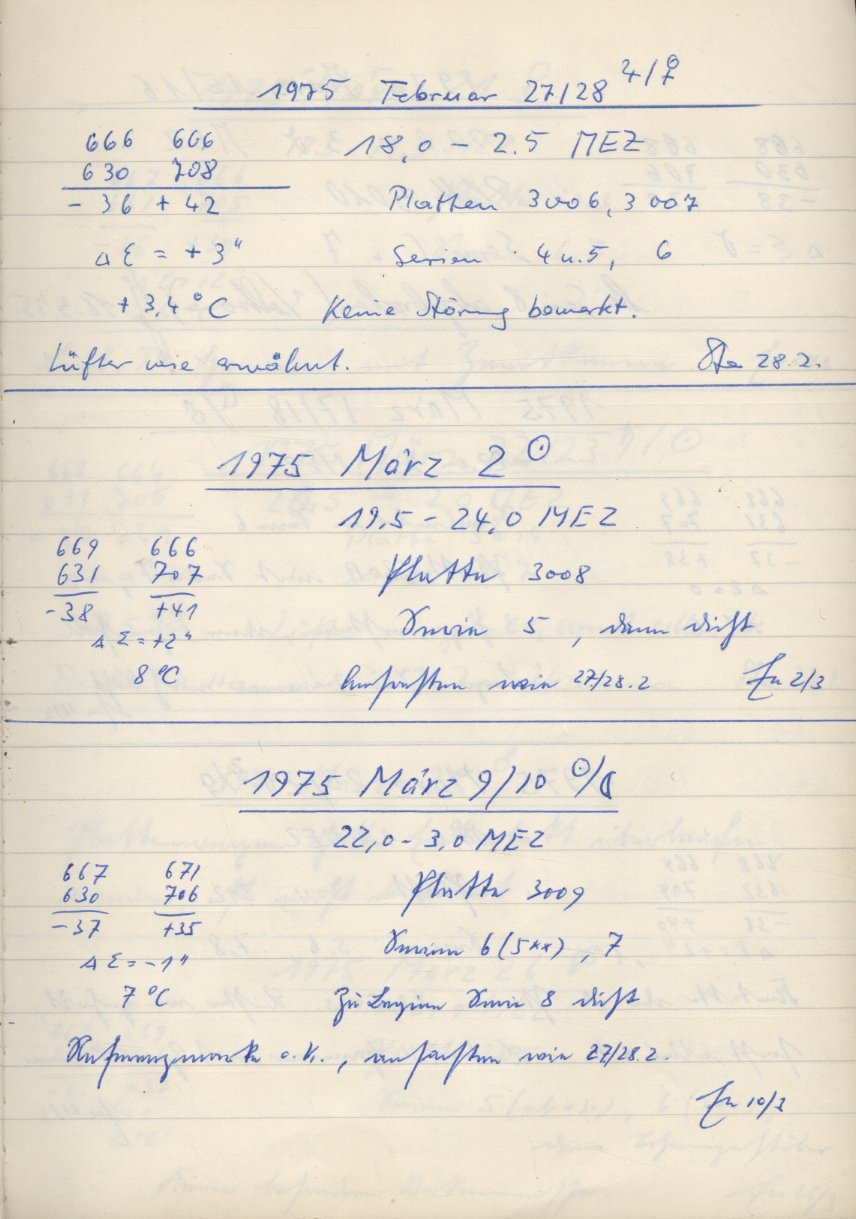 1975 Februar 27/28 ♃/♀
666 606 18,0 – 2.5 MEZ
630 708
- 36 + 42 Platten 3006, 3007
Δ Σ = + 3" Serien 4 u. 5, 6
+ 3,4 °C Keine Störung bemerkt.
Lüfter wie erwähnt. 28.2.
1975 März 2 ☉
19,5 – 24,0 MEZ
669 666
631 707 Platte 3008
-38 +41
Δ Σ = +2" Serie 5, dann dicht
8 °C wie 27/28.2 2/3
1975 März 9/10 ☉/☾
22,0 - 3,0 MEZ
667 671
630 706 Platte 3009
-37 +35
Δ Σ = -1" Serien 6 (5xx), 7
7 °C Zu Beginn Serie 8 dicht
Referenzmarke o.k., wie 27/28.2.
10/3